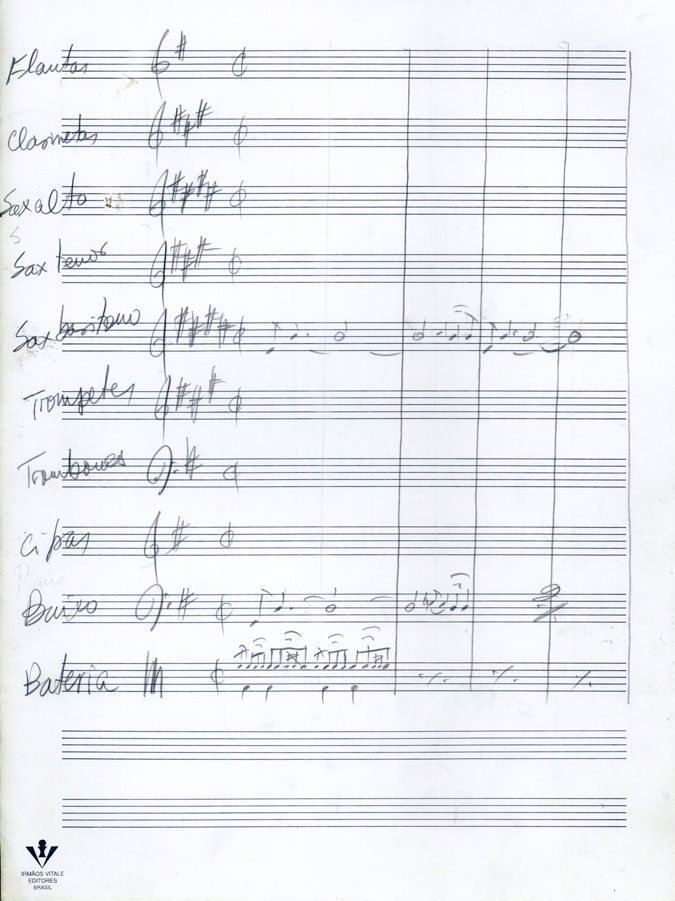 Flautas
Clarinetas
Sax alto
S
Sax tenor
Sax baritono
Trompetes
Trombones
Cifras
Piano
Baixo
Bateria
IRMÃOS VITALE
EDITORES
BRASIL